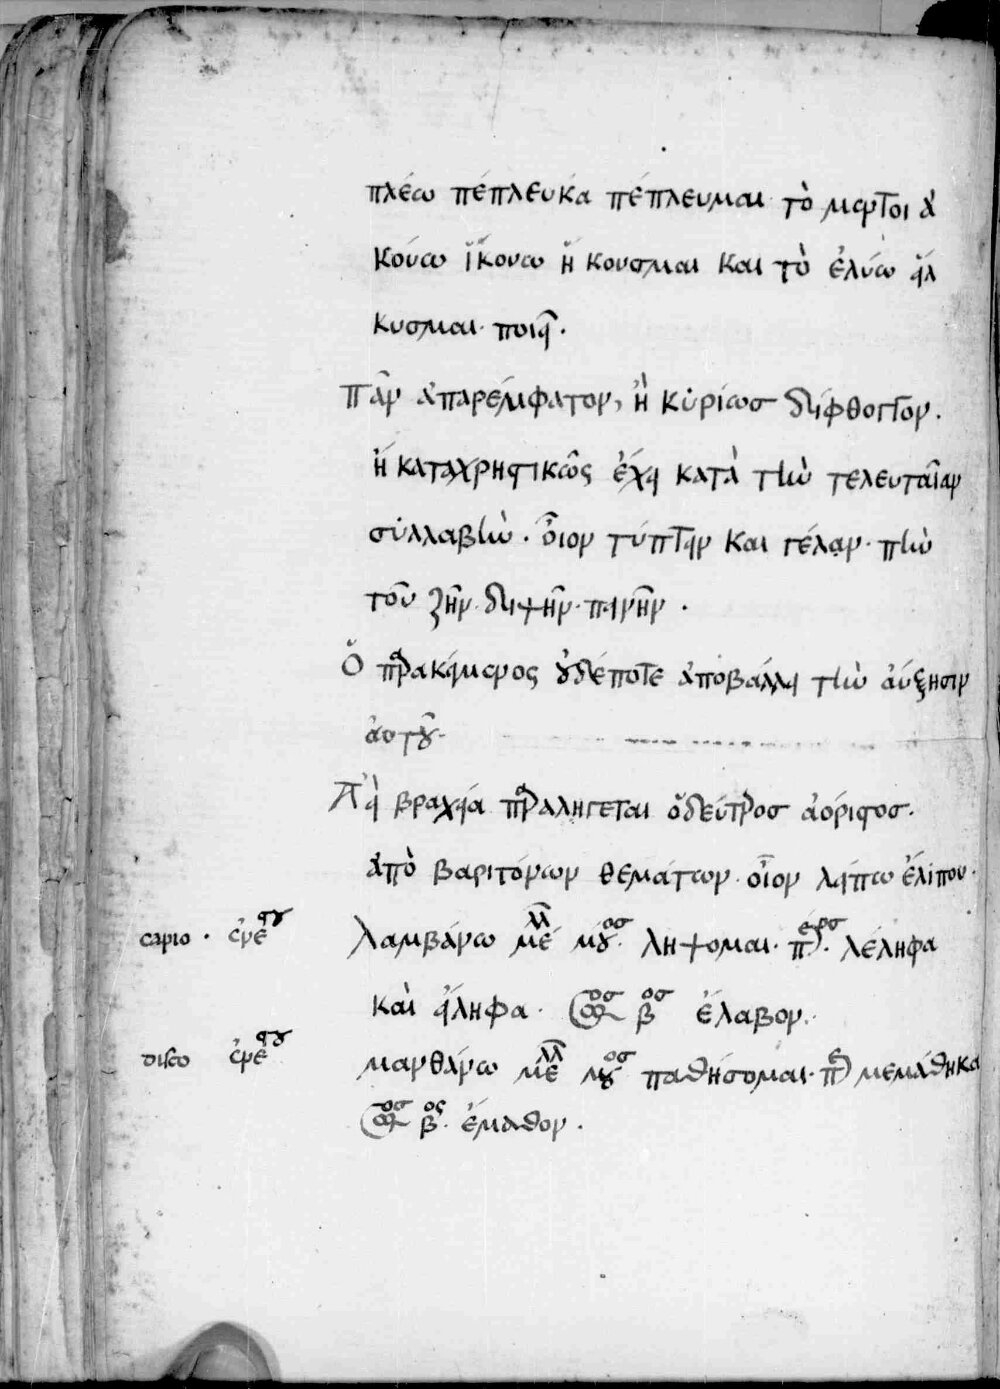 πλέω πέπλευκά πέπλευμαι τὸ μέντοι ἀ
κούω ἤκουσω ἤκουσμαι και τὸ ἑλύω εἵλ
κυσμαι· ποιεῖ·
Πᾶν ἀπαρέμφατον, ἢ κὑρίωσ δίφθογγον·
ἢ καταχρηστικῶς ἔχει κατὰ τὴν τελευταῖαν
σύλλαβὴν· οἷον τύπτειν και γέλαν· πλὴν
τοῦ ζῆν· διψῆν· πεινῆν·
Ὁ παρακείμενος οὐδέποτε ἀποβάλλει τὴν ἀύξησιν
ἀοτοῦ·
Ἀεὶ βραχεία παραλήγεται ὁ δεύτεροσ ἀόριστοσ·
ἀπὸ βαριτόνων θεμάτων· οἷον λείπω ἔλιπον·
capio · ἐνεσγ λαμβάνω μέλλ μέσοσ· λήψομαι· πρ· λέληφα
καὶ εἴληφα· ἀοσ βοσ ἔλαβον·
disco ἐνεσγ μανθάνω μελλ μέσοσ παθήσομαι· πρ μεμάθηκα
ἀοσ βος· ἔμαθον·